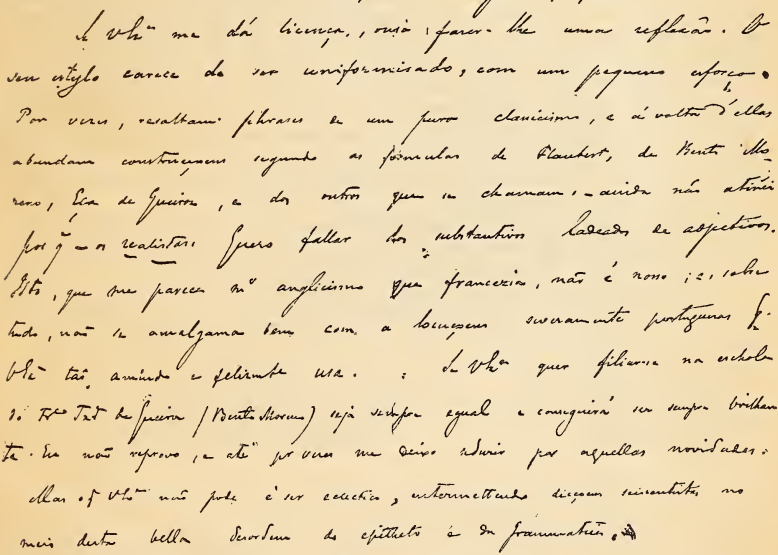 Se V Exª me dá licença, ousio fazer-lhe uma reflexão. O
seu estylo carece de ser uniformisado, com um pequeno esforço.
Por vezes, resaltam phrases de um puro classicismo, e á volta d'ellas
abundam construcçoens segundo as formulas de Flaubert, de Bento Mo-
reno, Eça de Queiroz, e dos outros que se chamam, – ainda não atinei
por q̃ – os realistas. Quero fallar dos substantivos ladeados de adjectivos.
Isto, que me parece mº anglicismo que francezia, não é nosso; e, sobre
tudo, não se amalgama bem com a locuçoens severamente portuguezas q.
V Exª tão amiude e felizmte usa. Se V Exª quer filiar-se na eschola
do Frco Teixª de Queiroz (Bento Moreno) seja sempre egual e conseguirá ser sempre brilhan
te. Eu não reprovo, e até por vezes me deixo seduzir por aquellas novidades:
mas o q̃ V Exª não pode é ser eclectico, intermettendo dicçoens seiscentistas no
meio desta bella desordem do epitheto e da grammatica.